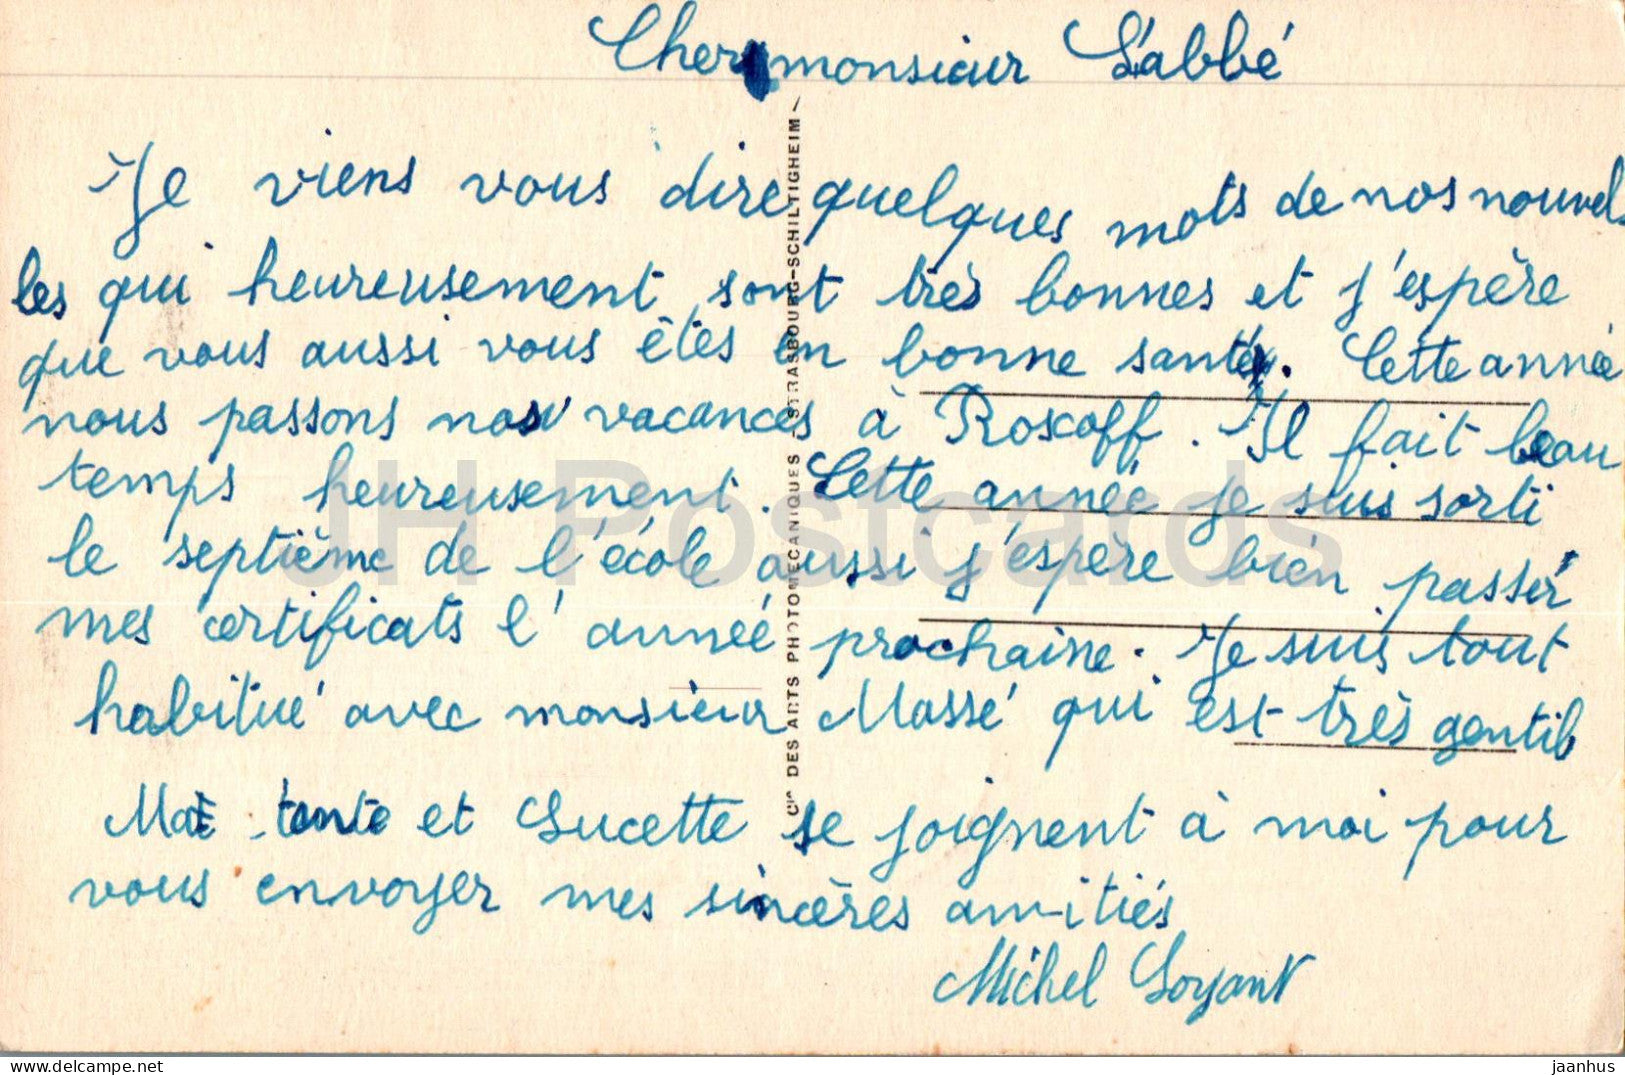 Cher monsieur L'abbé
Je viens vous dire quelques mots de nos nouvel
les qui heureusement sont très bonnes et j'espère
que vous aussi vous êtes en bonne santé. Cette année
nous passons nos vacances à Roscoff. Il fait beau
temps heureusement. Cette année je suis sorti
le septième de l'école aussi j'espère bien passer
mes certificats l'année prochaine. Je suis tout
habitué avec monsieur Massé qui est très gentil
Ma tente et Lucette se joignent à moi pour
vous envoyer mes sincères amitiés
Michel Loyant
CIE DES ARTS PHOTOMECANIQUES - STRASBOURG-SCHILTIGHEIM
JH Postcards
delcampe.net
jaanhus